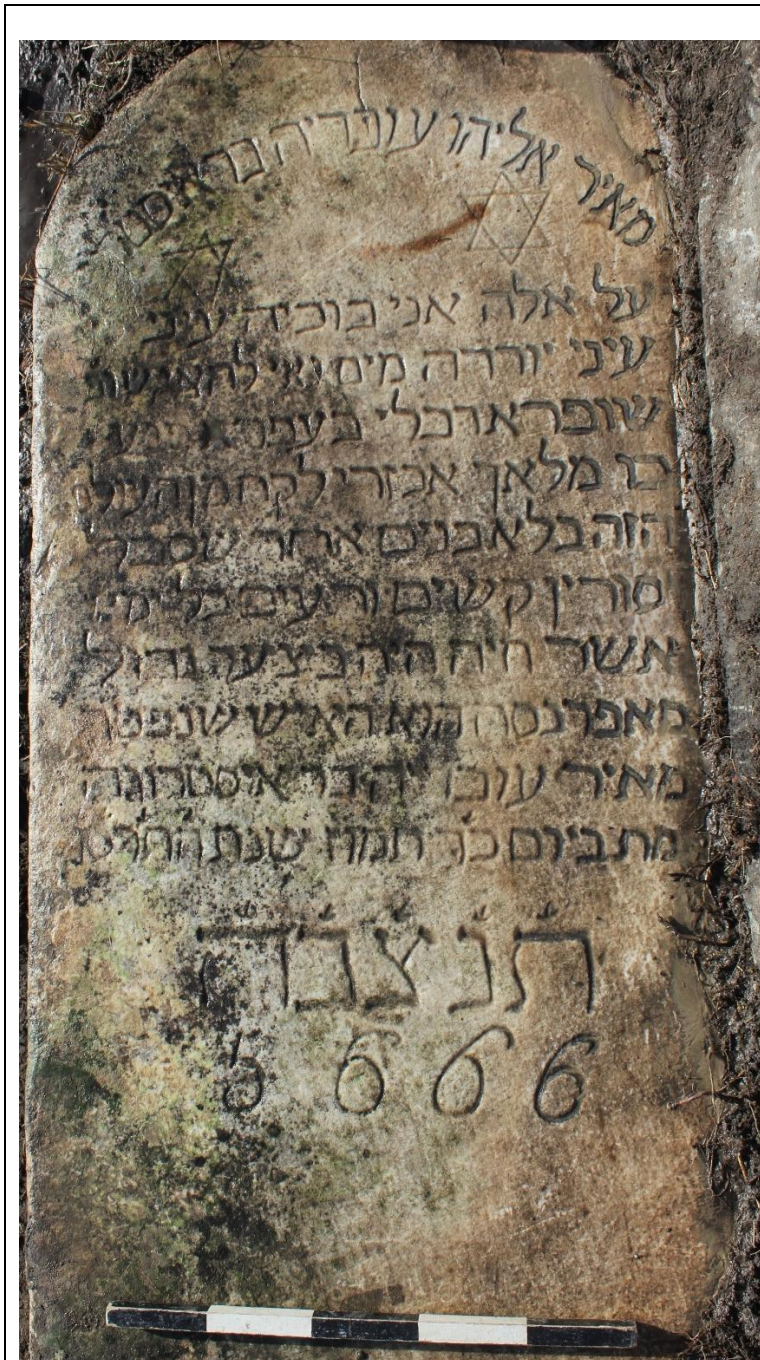 מאיר אליהו עובדיה בר איסטר
על אלה אני בוכיה עיני
עיני יורדה מים
שופר ארבלי בעפר
בו מלאך אכזרי לקח מן העולם
הזה בלא בנים אחר שסבל
סורין קשים ורעים כל ימי
אשר חיה היה בצער גדול
מאפרנסה הוא האיש שנפטר
מאיר עובדיה בר איסטרוגה
מת ביום כד תמוז שנת
תנצבה
5666